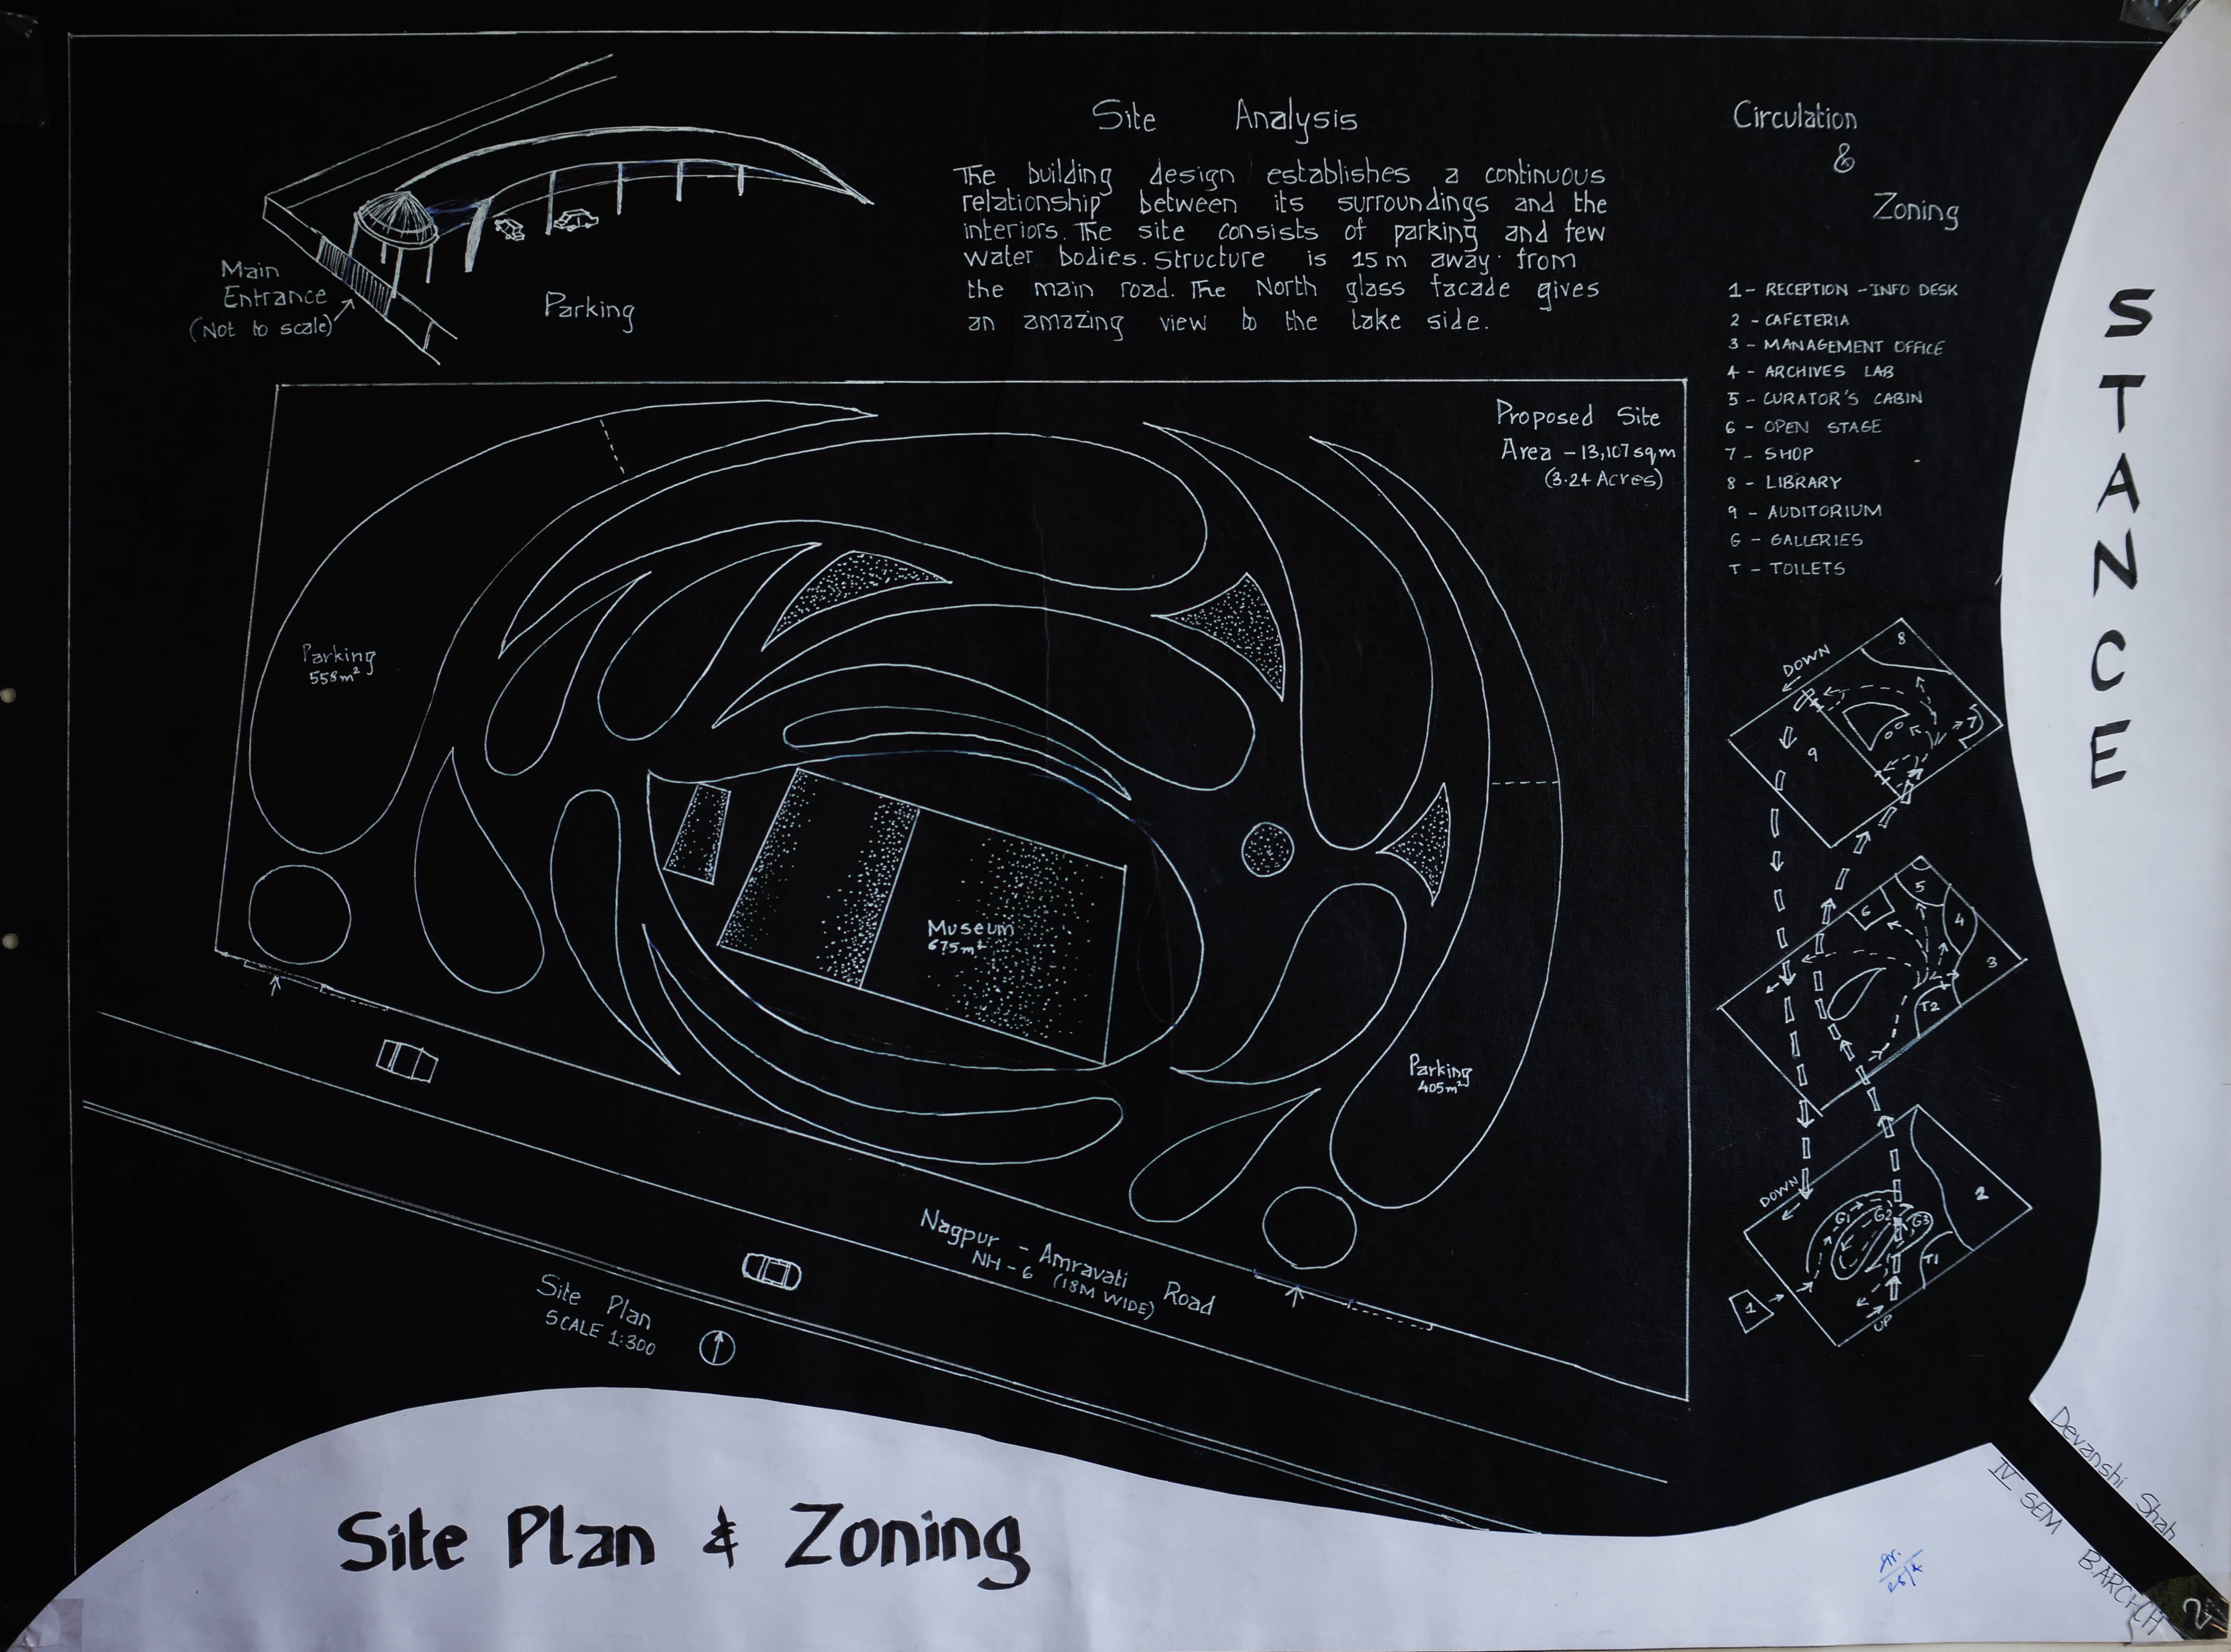 Site Analysis
The building design establishes a continuous
relationship between its surroundings and the
interiors. The site consists of parking and few
water bodies. Structure is 15m away from
the main road. The North glass facade gives
an amazing view to the lake side.
Main
Entrance
(Not to scale)
Parking
Circulation
&
Zoning
1 - RECEPTION - INFO DESK
2 - CAFETERIA
3 - MANAGEMENT OFFICE
4 - ARCHIVES LAB
5 - CURATOR'S CABIN
6 - OPEN STAGE
7 - SHOP
8 - LIBRARY
9 - AUDITORIUM
G - GALLERIES
T - TOILETS
STANCE
Proposed Site
Area - 13,107 sqm
(3.24 Acres)
Parking
558m²
Museum
675m²
Parking
405m²
Nagpur - Amravati Road
NH-6 (18M WIDE)
Site Plan
SCALE 1:300
DOWN
8
7
9
5
6
4
3
T2
DOWN
2
G1
G2
G3
T1
1
UP
Site Plan & Zoning
Devanshi Shah
IV SEM B.ARCH
2